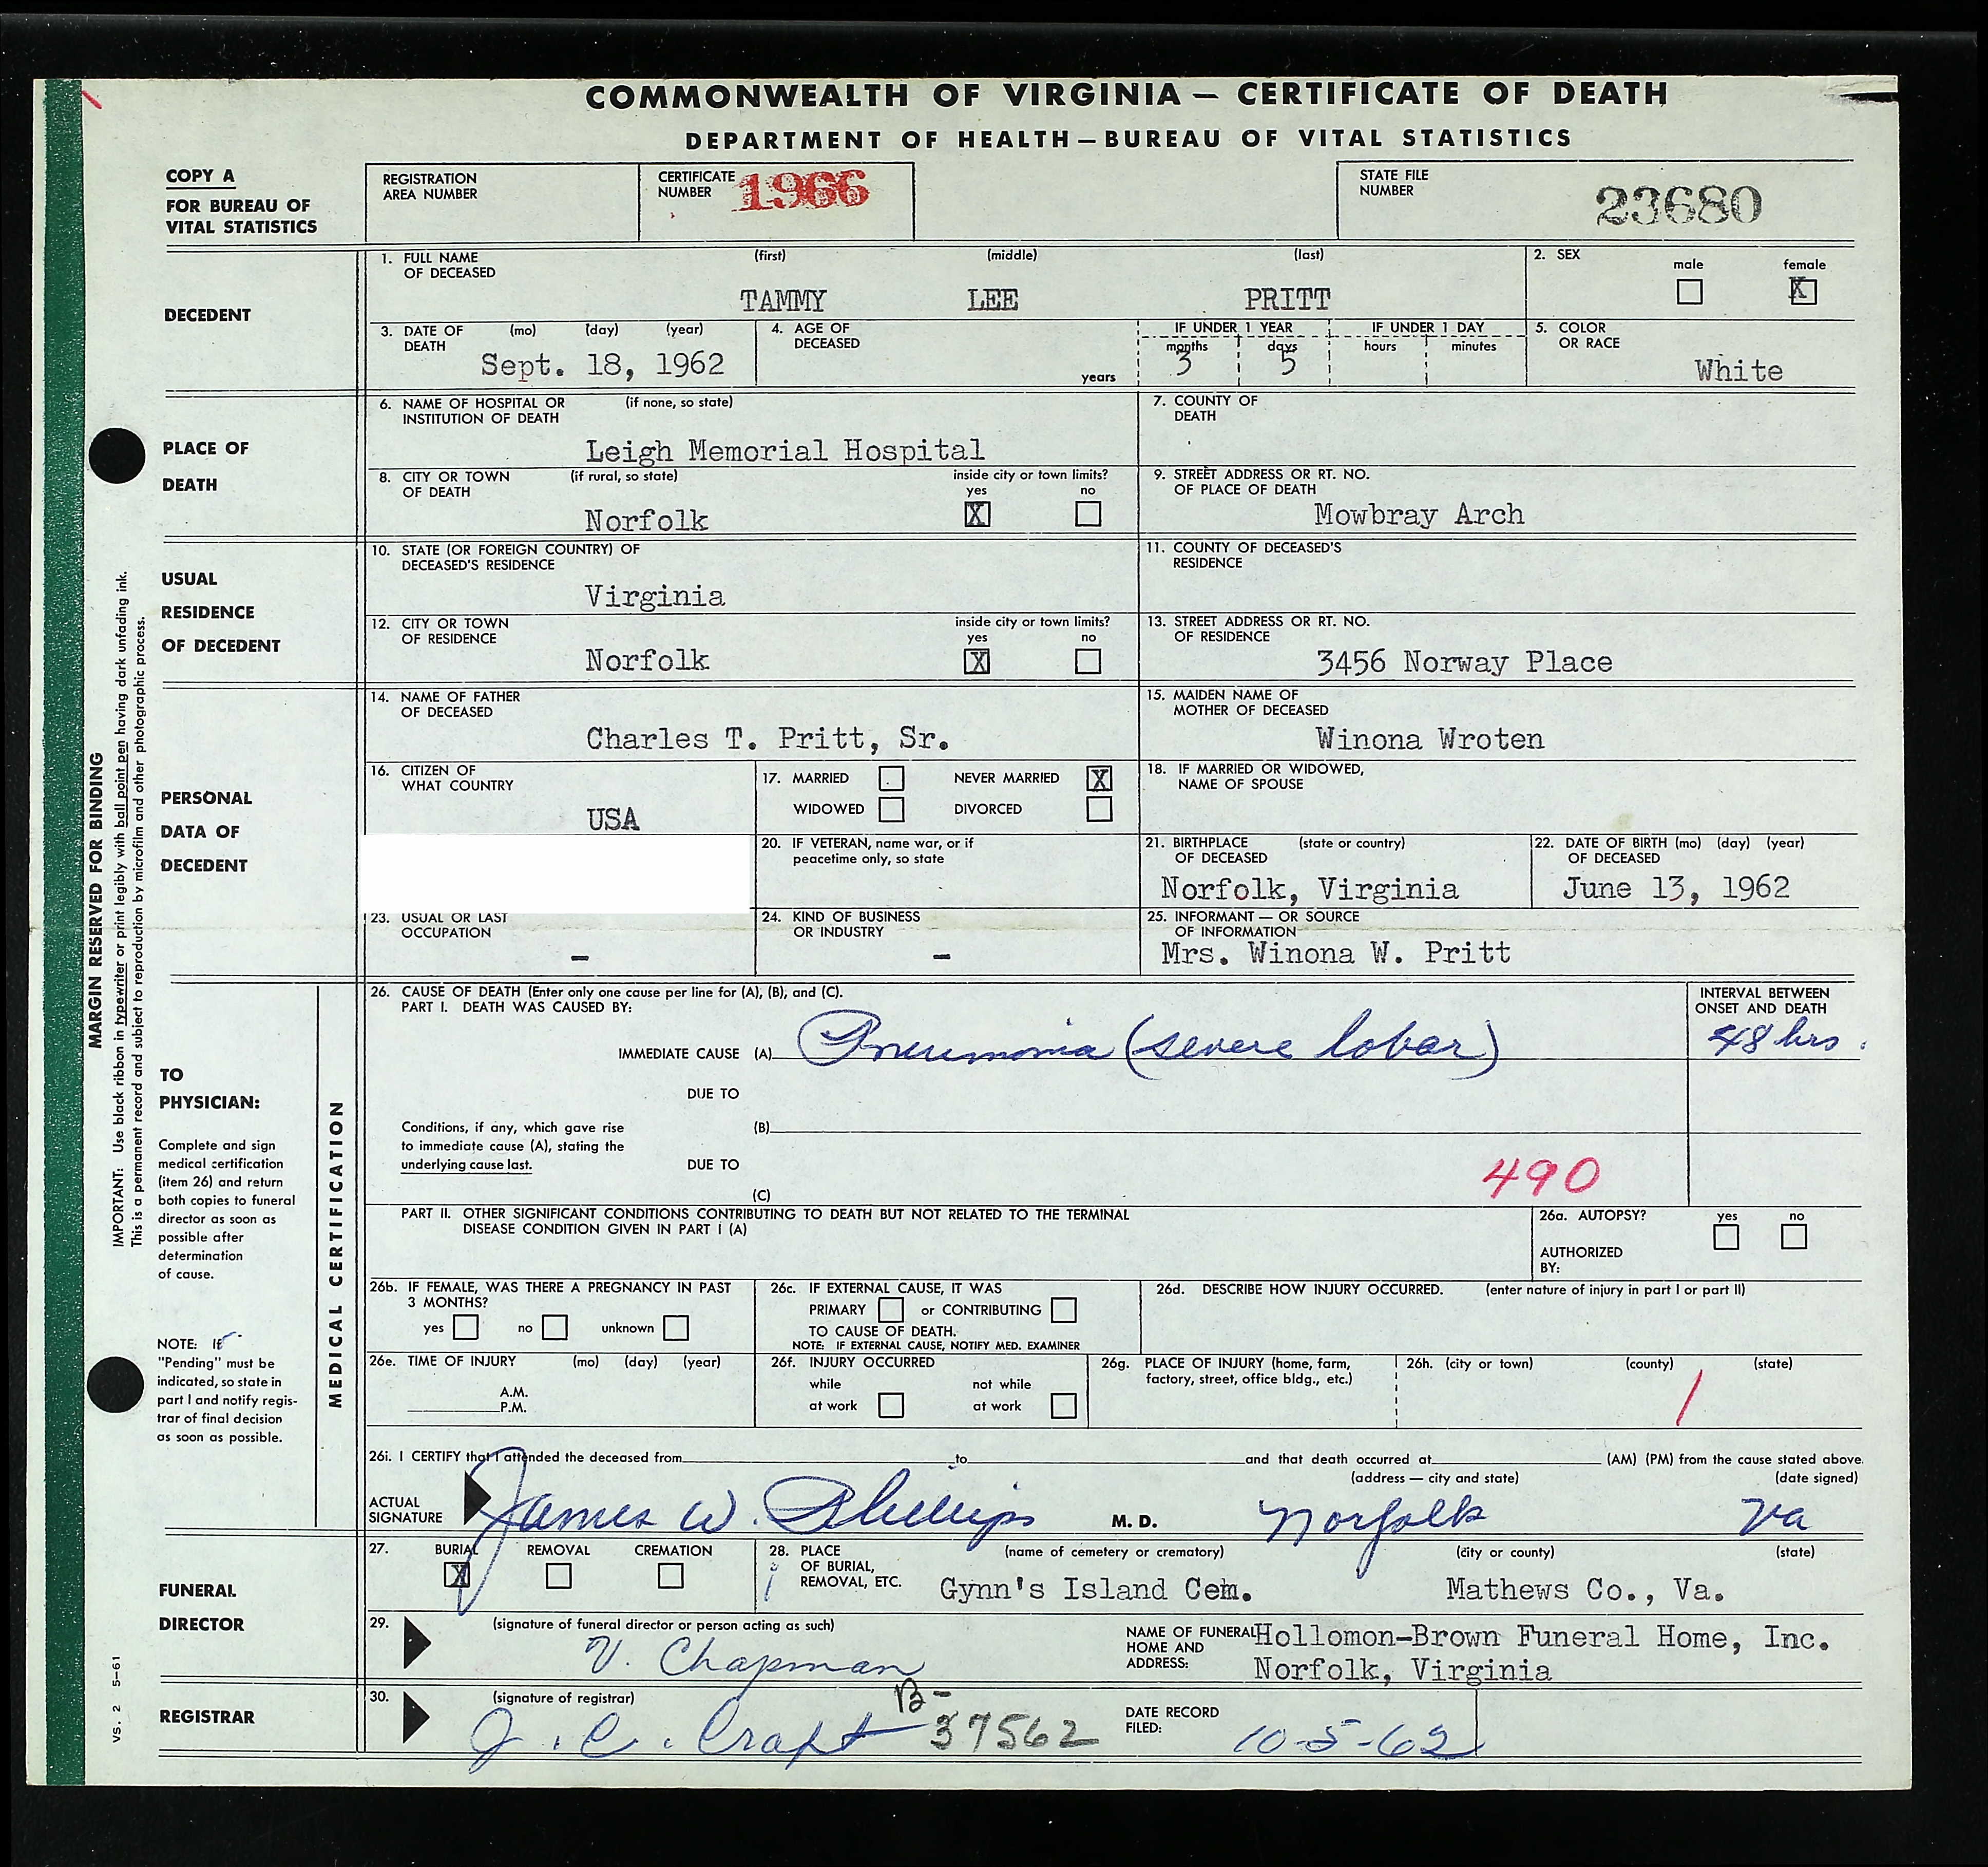 COMMONWEALTH OF VIRGINIA — CERTIFICATE OF DEATH
DEPARTMENT OF HEALTH — BUREAU OF VITAL STATISTICS
COPY A
FOR BUREAU OF
VITAL STATISTICS
REGISTRATION
AREA NUMBER
CERTIFICATE
NUMBER 1966
STATE FILE
NUMBER
23680
DECEDENT
1. FULL NAME
OF DECEASED
(first) (middle) (last)
TAMMY LEE PRITT
2. SEX
male female
X
3. DATE OF
DEATH
(mo) (day) (year)
Sept. 18, 1962
4. AGE OF
DECEASED
years
IF UNDER 1 YEAR
months days
3 5
IF UNDER 1 DAY
hours minutes
5. COLOR
OR RACE
White
PLACE OF
DEATH
6. NAME OF HOSPITAL OR (if none, so state)
INSTITUTION OF DEATH
Leigh Memorial Hospital
7. COUNTY OF
DEATH
8. CITY OR TOWN (if rural, so state)
OF DEATH
Norfolk
inside city or town limits?
yes no
X
9. STREET ADDRESS OR RT. NO.
OF PLACE OF DEATH
Mowbray Arch
USUAL
RESIDENCE
OF DECEDENT
10. STATE (OR FOREIGN COUNTRY) OF
DECEASED'S RESIDENCE
Virginia
11. COUNTY OF DECEASED'S
RESIDENCE
12. CITY OR TOWN
OF RESIDENCE
Norfolk
inside city or town limits?
yes no
X
13. STREET ADDRESS OR RT. NO.
OF RESIDENCE
3456 Norway Place
PERSONAL
DATA OF
DECEDENT
14. NAME OF FATHER
OF DECEASED
Charles T. Pritt, Sr.
15. MAIDEN NAME OF
MOTHER OF DECEASED
Winona Wroten
16. CITIZEN OF
WHAT COUNTRY
USA
17. MARRIED NEVER MARRIED X
WIDOWED DIVORCED
18. IF MARRIED OR WIDOWED,
NAME OF SPOUSE
20. IF VETERAN, name war, or if
peacetime only, so state
21. BIRTHPLACE (state or country)
OF DECEASED
Norfolk, Virginia
22. DATE OF BIRTH (mo) (day) (year)
OF DECEASED
June 13, 1962
23. USUAL OR LAST
OCCUPATION
-
24. KIND OF BUSINESS
OR INDUSTRY
-
25. INFORMANT — OR SOURCE
OF INFORMATION
Mrs. Winona W. Pritt
TO
PHYSICIAN:
Complete and sign
medical certification
(item 26) and return
both copies to funeral
director as soon as
possible after
determination
of cause.
NOTE: If
"Pending" must be
indicated, so state in
part I and notify regis-
trar of final decision
as soon as possible.
MEDICAL CERTIFICATION
26. CAUSE OF DEATH (Enter only one cause per line for (A), (B), and (C).
PART I. DEATH WAS CAUSED BY:
INTERVAL BETWEEN
ONSET AND DEATH
IMMEDIATE CAUSE (A) Pneumonia (severe lobar)
48 hrs.
DUE TO
Conditions, if any, which gave rise
to immediate cause (A), stating the
underlying cause last.
(B)
DUE TO
(C)
490
PART II. OTHER SIGNIFICANT CONDITIONS CONTRIBUTING TO DEATH BUT NOT RELATED TO THE TERMINAL
DISEASE CONDITION GIVEN IN PART I (A)
26a. AUTOPSY? yes no
AUTHORIZED
BY:
26b. IF FEMALE, WAS THERE A PREGNANCY IN PAST
3 MONTHS?
yes no unknown
26c. IF EXTERNAL CAUSE, IT WAS
PRIMARY or CONTRIBUTING
TO CAUSE OF DEATH.
NOTE: IF EXTERNAL CAUSE, NOTIFY MED. EXAMINER
26d. DESCRIBE HOW INJURY OCCURRED. (enter nature of injury in part I or part II)
26e. TIME OF INJURY (mo) (day) (year)
A.M.
P.M.
26f. INJURY OCCURRED
while not while
at work at work
26g. PLACE OF INJURY (home, farm,
factory, street, office bldg., etc.)
26h. (city or town) (county) (state)
26i. I CERTIFY that I attended the deceased from to and that death occurred at (AM) (PM) from the cause stated above.
(address — city and state) (date signed)
ACTUAL
SIGNATURE
James W. Phillips M. D. Norfolk Va
FUNERAL
DIRECTOR
27. BURIAL REMOVAL CREMATION
X
28. PLACE
OF BURIAL,
REMOVAL, ETC.
(name of cemetery or crematory) (city or county) (state)
Gynn's Island Cem. Mathews Co., Va.
29. (signature of funeral director or person acting as such)
V. Chapman
NAME OF FUNERAL
HOME AND
ADDRESS:
Hollomon-Brown Funeral Home, Inc.
Norfolk, Virginia
REGISTRAR
30. (signature of registrar)
J. C. Craft
B-
37562
DATE RECORD
FILED:
10-5-62
MARGIN RESERVED FOR BINDING
IMPORTANT: Use black ribbon in typewriter or print legibly with ball point pen having dark unfading ink.
This is a permanent record and subject to reproduction by microfilm and other photographic process.
VS. 2 5-61